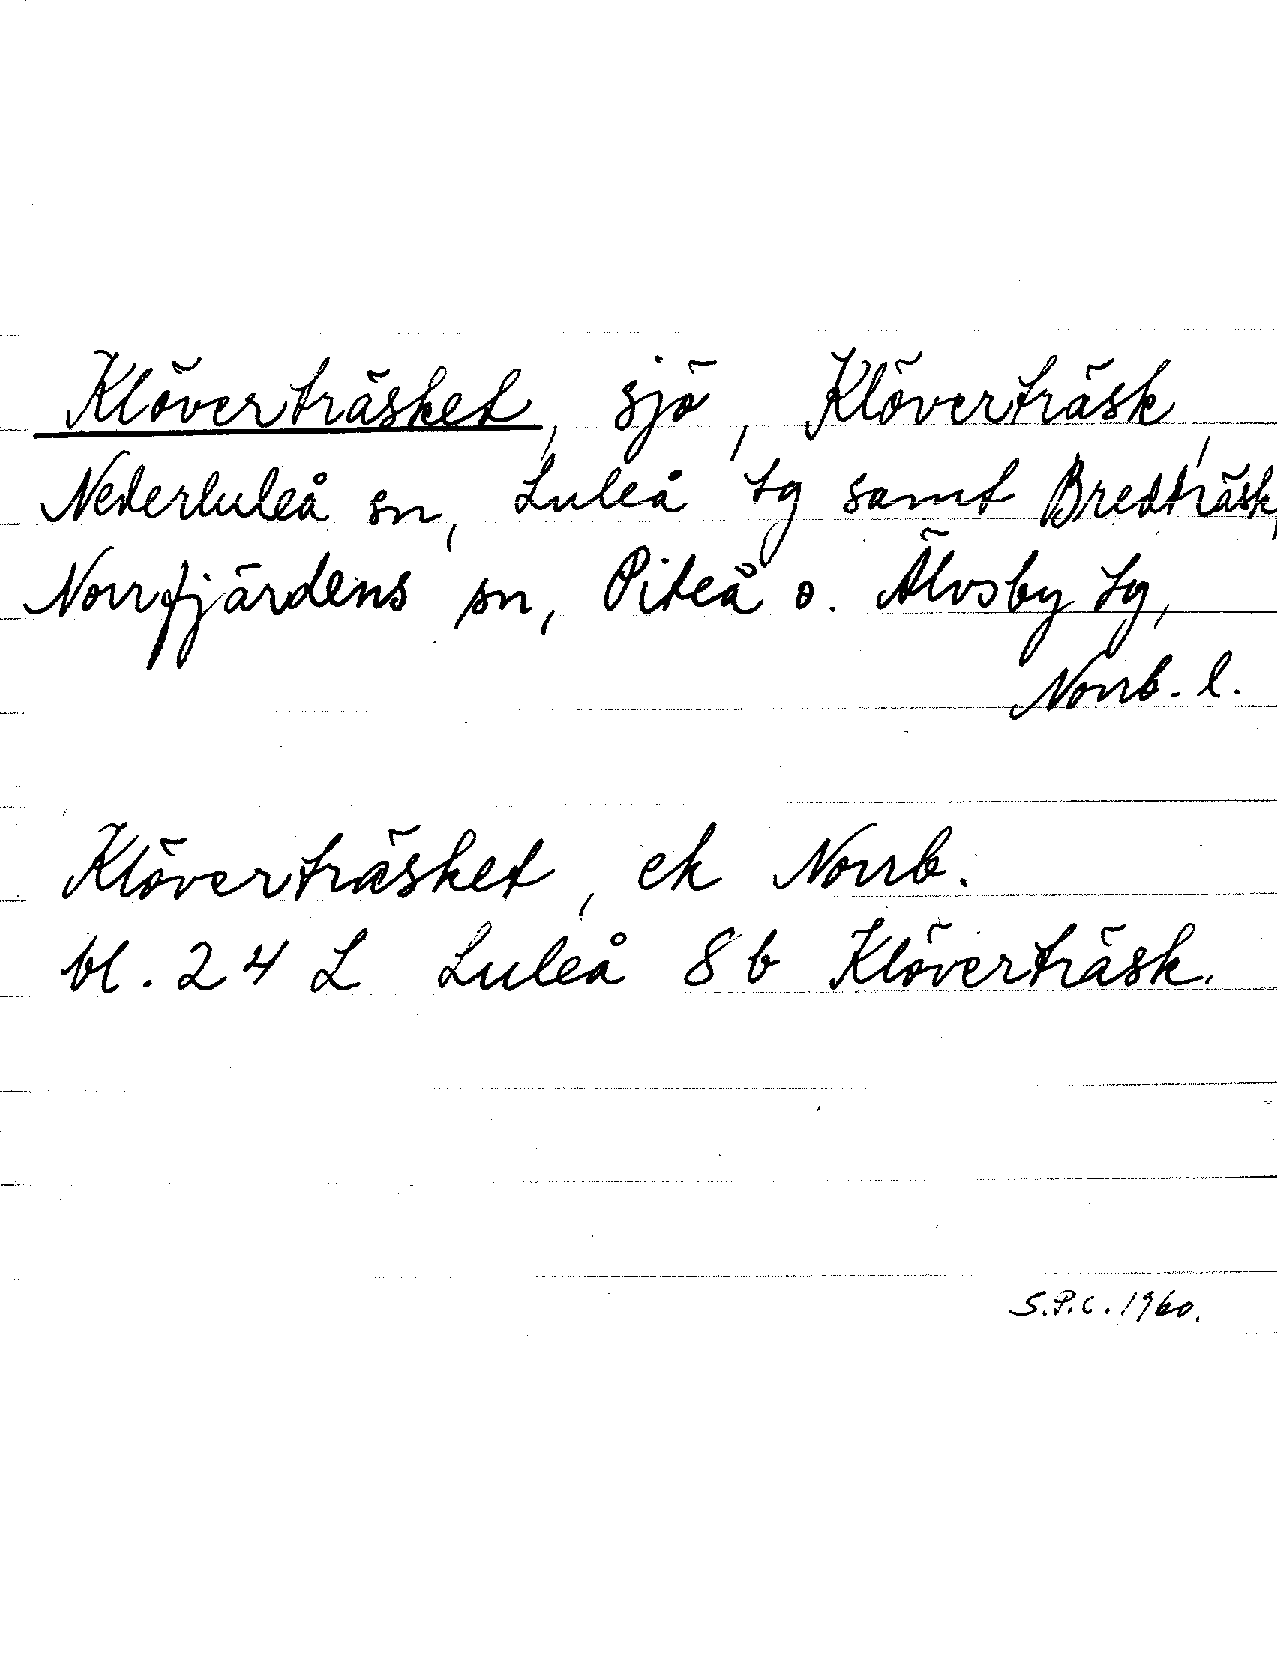 Klöverträsket, sjö, Klöverträsk,
Nederluleå sn, Luleå tg samt Bredträsk,
Norrfjärdens sn, Piteå o. Älvsby tg,
Norrb. l.
Klöverträsket, ek Norrb.
bl. 24 L Luleå 8b Klöverträsk.
S.P.C. 1960.